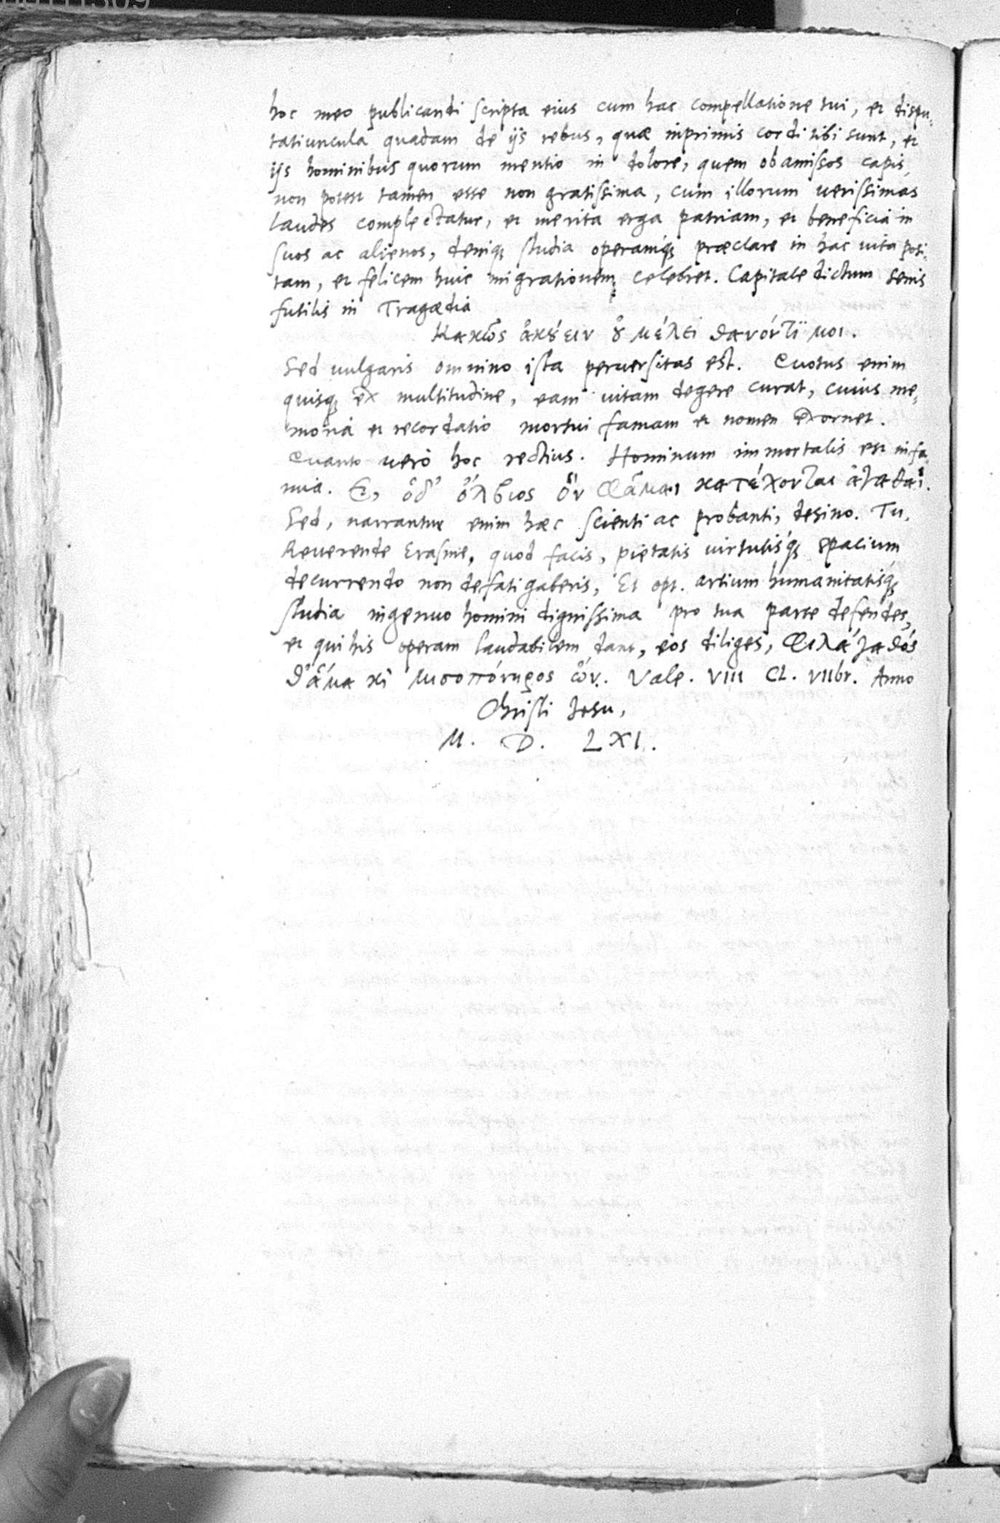 hoc meo publicandi scripta eius cum hac compellatione tui, et dispu-
tatiuncula quadam de ijs rebus, quæ inprimis cordi tibi sunt, et
ijs hominibus quorum mentio in dolore, quem ob amissos capis,
non potest tamen esse non gratissima, cum illorum uerissimas
laudes complectatur, et merita erga patriam, et beneficia in
suos ac alienos, deniq; studia operamq; præclare in hac uita posi-
tam, et felicem huic migrationem celebret. Capitale dictum senis
futilis in Tragædia
Κακῶς ἀκούειν οὐ μέλει θανόντι μοι.
Sed uulgaris omnino ista peruersitas est. Quotus enim
quisq; ex multitudine, eam uitam degere curat, cuius me-
moria et recordatio mortui famam et nomen exornet.
Quanto uero hoc rectius. Hominum immortalis est infa-
mia. Et, ὁ δ' ὄλβιος ὃν φᾶμαι κατέχονται ἀγαθαί.
Sed, narrantur enim hæc scienti ac probanti, desino. Tu,
Reuerende Erasme, quod facis, pietatis uirtutisq; spacium
decurrendo non defatigaberis, Et opt. artium humanitatisq;
studia ingenuo homini dignissima pro tua parte defendes,
et qui his operam laudabilem dant, eos diliges, φιλάγαθός
θ' ἅμα καὶ μισοπόνηρος ὤν. Vale. VIII CL. VIIbr. Anno
Christi Jesu,
M. D. LXI.